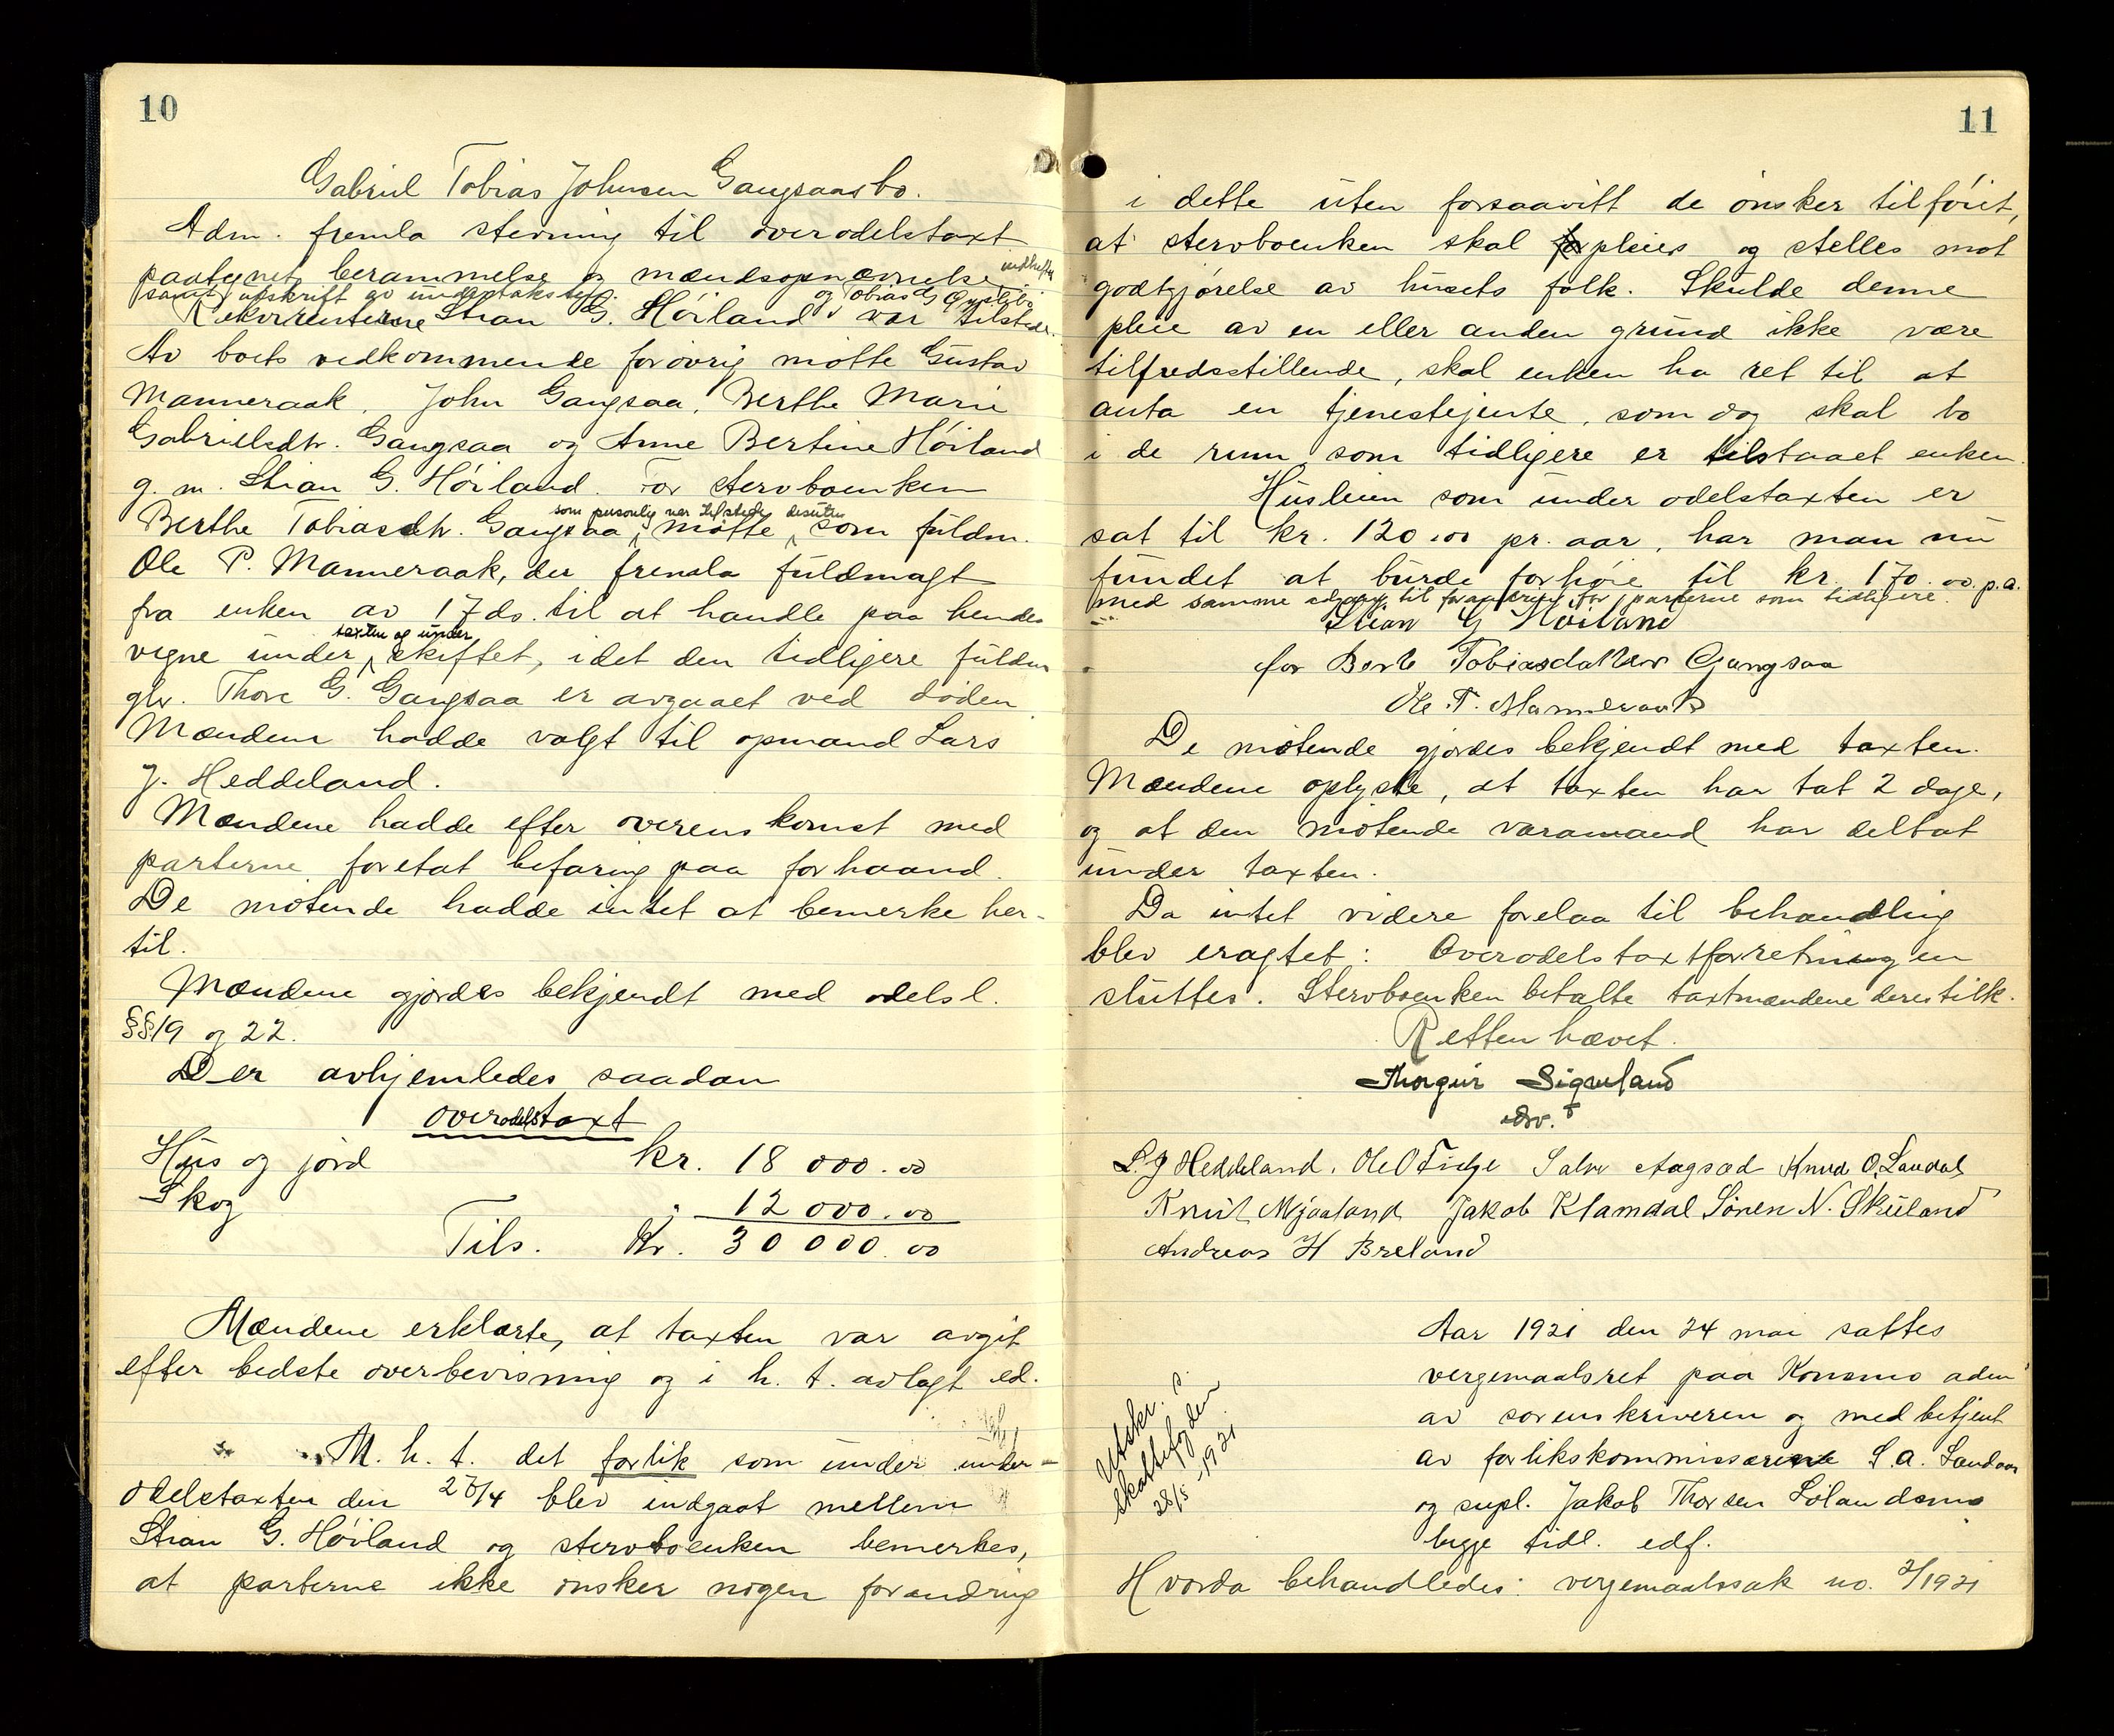 10
Gabriel Tobias Johnsen Gangsaas bo.
Adm. fremla stevning til overodelstaxt
paategnet berammelse og mændsopnævnelse
samt utskrift av undertakst
Rekvirenterne Stian G. Höiland og Tobias G var tilstede.
Av boets vedkommende forövrig mötte Gustav
Manneraak, John Gangsaa, Berthe Marie
Gabrielsdtr. Gangsaa og Anne Bertine Höiland
g. m. Stian G. Höiland. For stervboenken
som personlig var tilstede desuten
Berthe Tobiasdtr. Gangsaa, mötte som fuldm.
Ole P. Manneraak, der fremla fuldmagt
fra enken av 17 ds. til at handle paa hendes
taxten og under
vegne under skiftet, idet den tidligere fuldm
Thore G. Gangsaa er avgaaet ved döden.
Mændene hadde valgt til opmand Lars
J. Heddeland.
Mændene hadde efter overenskomst med
parterne foretat befaring paa forhaand.
De mötende hadde intet at bemerke her-
til.
Mændene gjordes bekjendt med odelsl.
§§19 og 22.
Der avhjemledes saadan
overodelstaxt
Hus og jord kr. 18 000.00
Skog " 12 000.00
Tils. Kr. 30 000.00
Mændene erklærte, at taxten var avgit
efter bedste overbevisning og i h. t. avlagt ed.
M. h. t. det forlik som under under-
odelstaxten den /4 blev indgaat mellem
Stian G. Höiland og stervboenken bemerkes,
at parterne ikke önsker nogen forandring
11
i dette uten forsaavitt de önsker tilföiet,
at stervboenken skal pleies og stelles mot
godtgjörelse av husets folk. Skulde denne
pleie av en eller anden grund ikke være
tilfredsstillende, skal enken ha ret til at
anta en tjenestejente, som dog skal bo
i de rum som tidligere er tilstaaet enken.
Husleien som under odelstaxten er
sat til kr. 120.00 pr. aar, har man nu
fundet at burde forhöie til kr. 170.00 p.a.
med samme adgang til forandring for parterne som tidligere.
Stian G Höiland
for Berte Tobiasdatter Gangsaa
Ole P. Manneraak
De mötende gjordes bekjendt med taxten.
Mændene oplyste, at taxten har tat 2 dage,
og at den mötende varamand har deltat
under taxten.
Da intet videre forelaa til behandling
blev eragtet: Overodelstaxtforretningen
sluttes. Stervboenken betalte taxtmændene deres tilk.
Retten hævet.
Thorgeir Sigveland
edsv. f
L. J Heddeland. Ole O Fidje Salve Aagsæd Knud O. Laudal
Knut Mjaaland Jakob Klamdal Sören N. Skuland
Andreas H Breland
Aar 1921 den 24 mai sattes
vergemaalsret paa Konsmo adm
av sorenskriveren og med betjent
av forlikskommissærene S. A. Landaas
og supl. Jakob Thorsen Sölandsmo
begge tidl. edf.
Utskr. s.
skattefogden
28/5-1921
Hvorda behandledes: vergemaalssak no. 2/1921